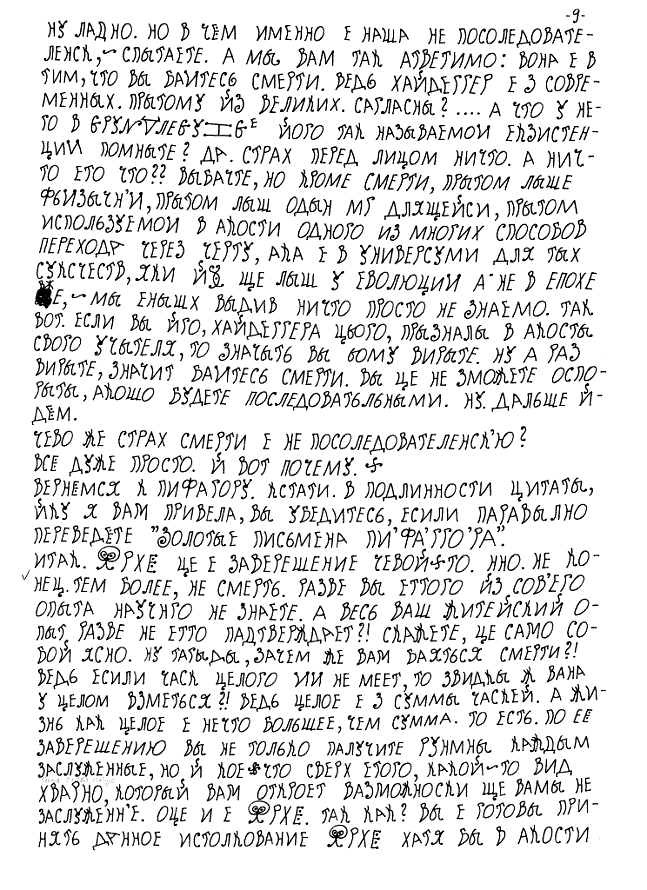 -9-
НУ ЛАДНО. НО В ЧЕМ ИМЕННО Е НАША НЕ ПОСОЛЕДОВАТЕ-
ЛЕНСК, ~ СПЫТАЕТЕ. А МЫ ВАМ ТАК АТВЕТИМО: ВОНА Е В
ТИМ, ЧТО ВЫ БАИТЕСЬ СМЕРТИ. ВЕДЬ ХАЙДЕГГЕР Е З СОВРЕ-
МЕННЫХ. ПРЫТОМУ ЙЗ ВЕЛИКИХ. САГЛАСНЫ? .... А ЧТО У НЕ-
ГО В ЙОГО ТАК НАЗЫВАЕМОЙ ЕКЗИСТЕН-
ЦИИ ПОМНЫТЕ? ДА. СТРАХ ПЕРЕД ЛИЦОМ НИЧТО. А НИЧ-
ТО ЕТО ЧТО?? ВЫБАЧТЕ, НО КРОМЕ СМЕРТИ, ПРЫТОМ ЛЫШЕ
ФЬИЗЫЧН'И, ПРЫТОМ ЛЫШ ОДЫН МГ ДЛЯЩЕЙСИ, ПРЫТОМ
ИСПОЛЬЗУЕМОЙ В АКОСТИ ОДНОГО ИЗ МНОГИХ СПОСОБОВ
ПЕРЕХОДА ЧЕРЕЗ ЧЕРТУ, АКА Е В УНИВЕРСУМИ ДЛЯ ТЫХ
СУКСЧЕСТВ, ЯКИ ЩЕ ЛЫШ У ЕВОЛЮЦИИ А НЕ В ЕПОХЕ
~ МЫ ЕНЫЩХ ВЫДИВ НИЧТО ПРОСТО НЕ ЗНАЕМО. ТАК
ВОТ. ЕСЛИ ВЫ ЙГО, ХАЙДЕГГЕРА ЦЬОГО, ПРЫЗНАЛЫ В АКОСТЫ
СВОГО УЧЫТЕЛЯ, ТО ЗНАЧЫТЬ ВЫ ЬОМУ ВИРЫТЕ. НУ А РАЗ
ВИРЫТЕ, ЗНАЧИТ БАИТЕСЬ СМЕРТИ. ВЫ ЦЕ НЕ ЗМОЖЕТЕ ОСПО-
РЫТЫ, АКОШО БУДЕТЕ ПОСЛЕДОВАТЕЛЬНЫМИ. НУ. ДАЛЬШЕ Й-
ДЕМ.
ЧЕВО ЖЕ СТРАХ СМЕРТИ Е НЕ ПОСОЛЕДОВАТЕЛЕНСК'Ю?
ВСЕ ДУЖЕ ПРОСТО. Й ВОТ ПОЧЕМУ.
ВЕРНЕМСЯ К ПИФАГОРУ. КСТАТИ. В ПОДЛИННОСТИ ЦИТАТЫ,
ЙКУ Я ВАМ ПРИВЕЛА, ВЫ УБЕДИТЕСЬ, ЕСИЛИ ПАРАВЫЛНО
ПЕРЕВЕДЕТЕ "ЗОЛОТЫЕ ПИСЬМЕНА ПИ'ФА'ГГО'РА".
ИТАК. ЦЕ Е ЗАВЕРЕШЕНИЕ ЧЕВОЙ ТО. ННО. НЕ КО-
НЕЦ. ТЕМ БОЛЕЕ, НЕ СМЕРТЬ. РАЗВЕ ВЫ ЕТТОГО ЙЗ СОВ'ЕГО
ОПЫТА НАУЧНГО НЕ ЗНАЕТЕ. А ВЕСЬ ВАШ ЖИТЕЙСКИЙ О-
ПЫТ РАЗВЕ НЕ ЕТТО ПАДТВЕРЖДАЕТ?! СКАЖЕТЕ, ЦЕ САМО СО-
БОЙ ЯСНО. НУ ТАГЫДЫ, ЗАЧЕМ ЖЕ ВАМ БАЯТЬСЯ СМЕРТИ?!
ВЕДЬ ЕСИЛИ ЧАСК ЦЕЛОГО ИИ НЕ МЕЕТ, ТО ЗВИДКЫ Ж ВАНА
У ЦЕЛОМ ВЗМЕТЬСЯ?! ВЕДЬ ЦЕЛОЕ Е З СУММЫ ЧАСКЕЙ. А ЖИ-
ЗНЬ КАК ЦЕЛОЕ Е НЕЧТО БОЛЬШЕЕ, ЧЕМ СУММА. ТО ЕСТЬ. ПО ЕЕ
ЗАВЕРЕШЕНИЮ ВЫ НЕ ТОЛЬКО ПАЛУЧИТЕ РУНМНЫ КАЖДЫМ
ЗАСЛУЖЕННЫЕ, НО Й КОЕ ЧТО СВЕРХ ЕТОГО, КАКОЙ~ТО ВИД
ХВАРНО, КОТОРЫЙ ВАМ ОТКРОЕТ ВАЗМОЖНОСКИ ЩЕ ВАМЫ НЕ
ЗАСЛУЖЕНН'Е. ОЦЕ И Е ТАК КАК? ВЫ Е ГОТОВЫ ПРИ-
НЯТЬ ДАННОЕ ИСТОЛКОВАНИЕ ХАТЯ БЫ В АКОСТИ